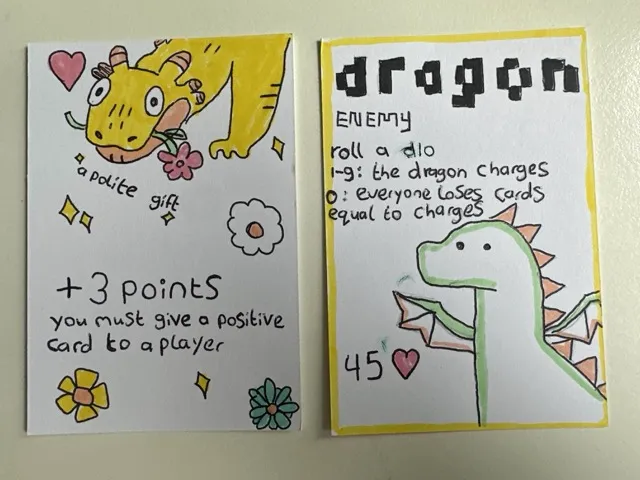 a polite gift
+3 points
you must give a positive
card to a player
dragon
ENEMY
roll a d10
1-9: the dragon charges
0: everyone loses cards
equal to charges
45